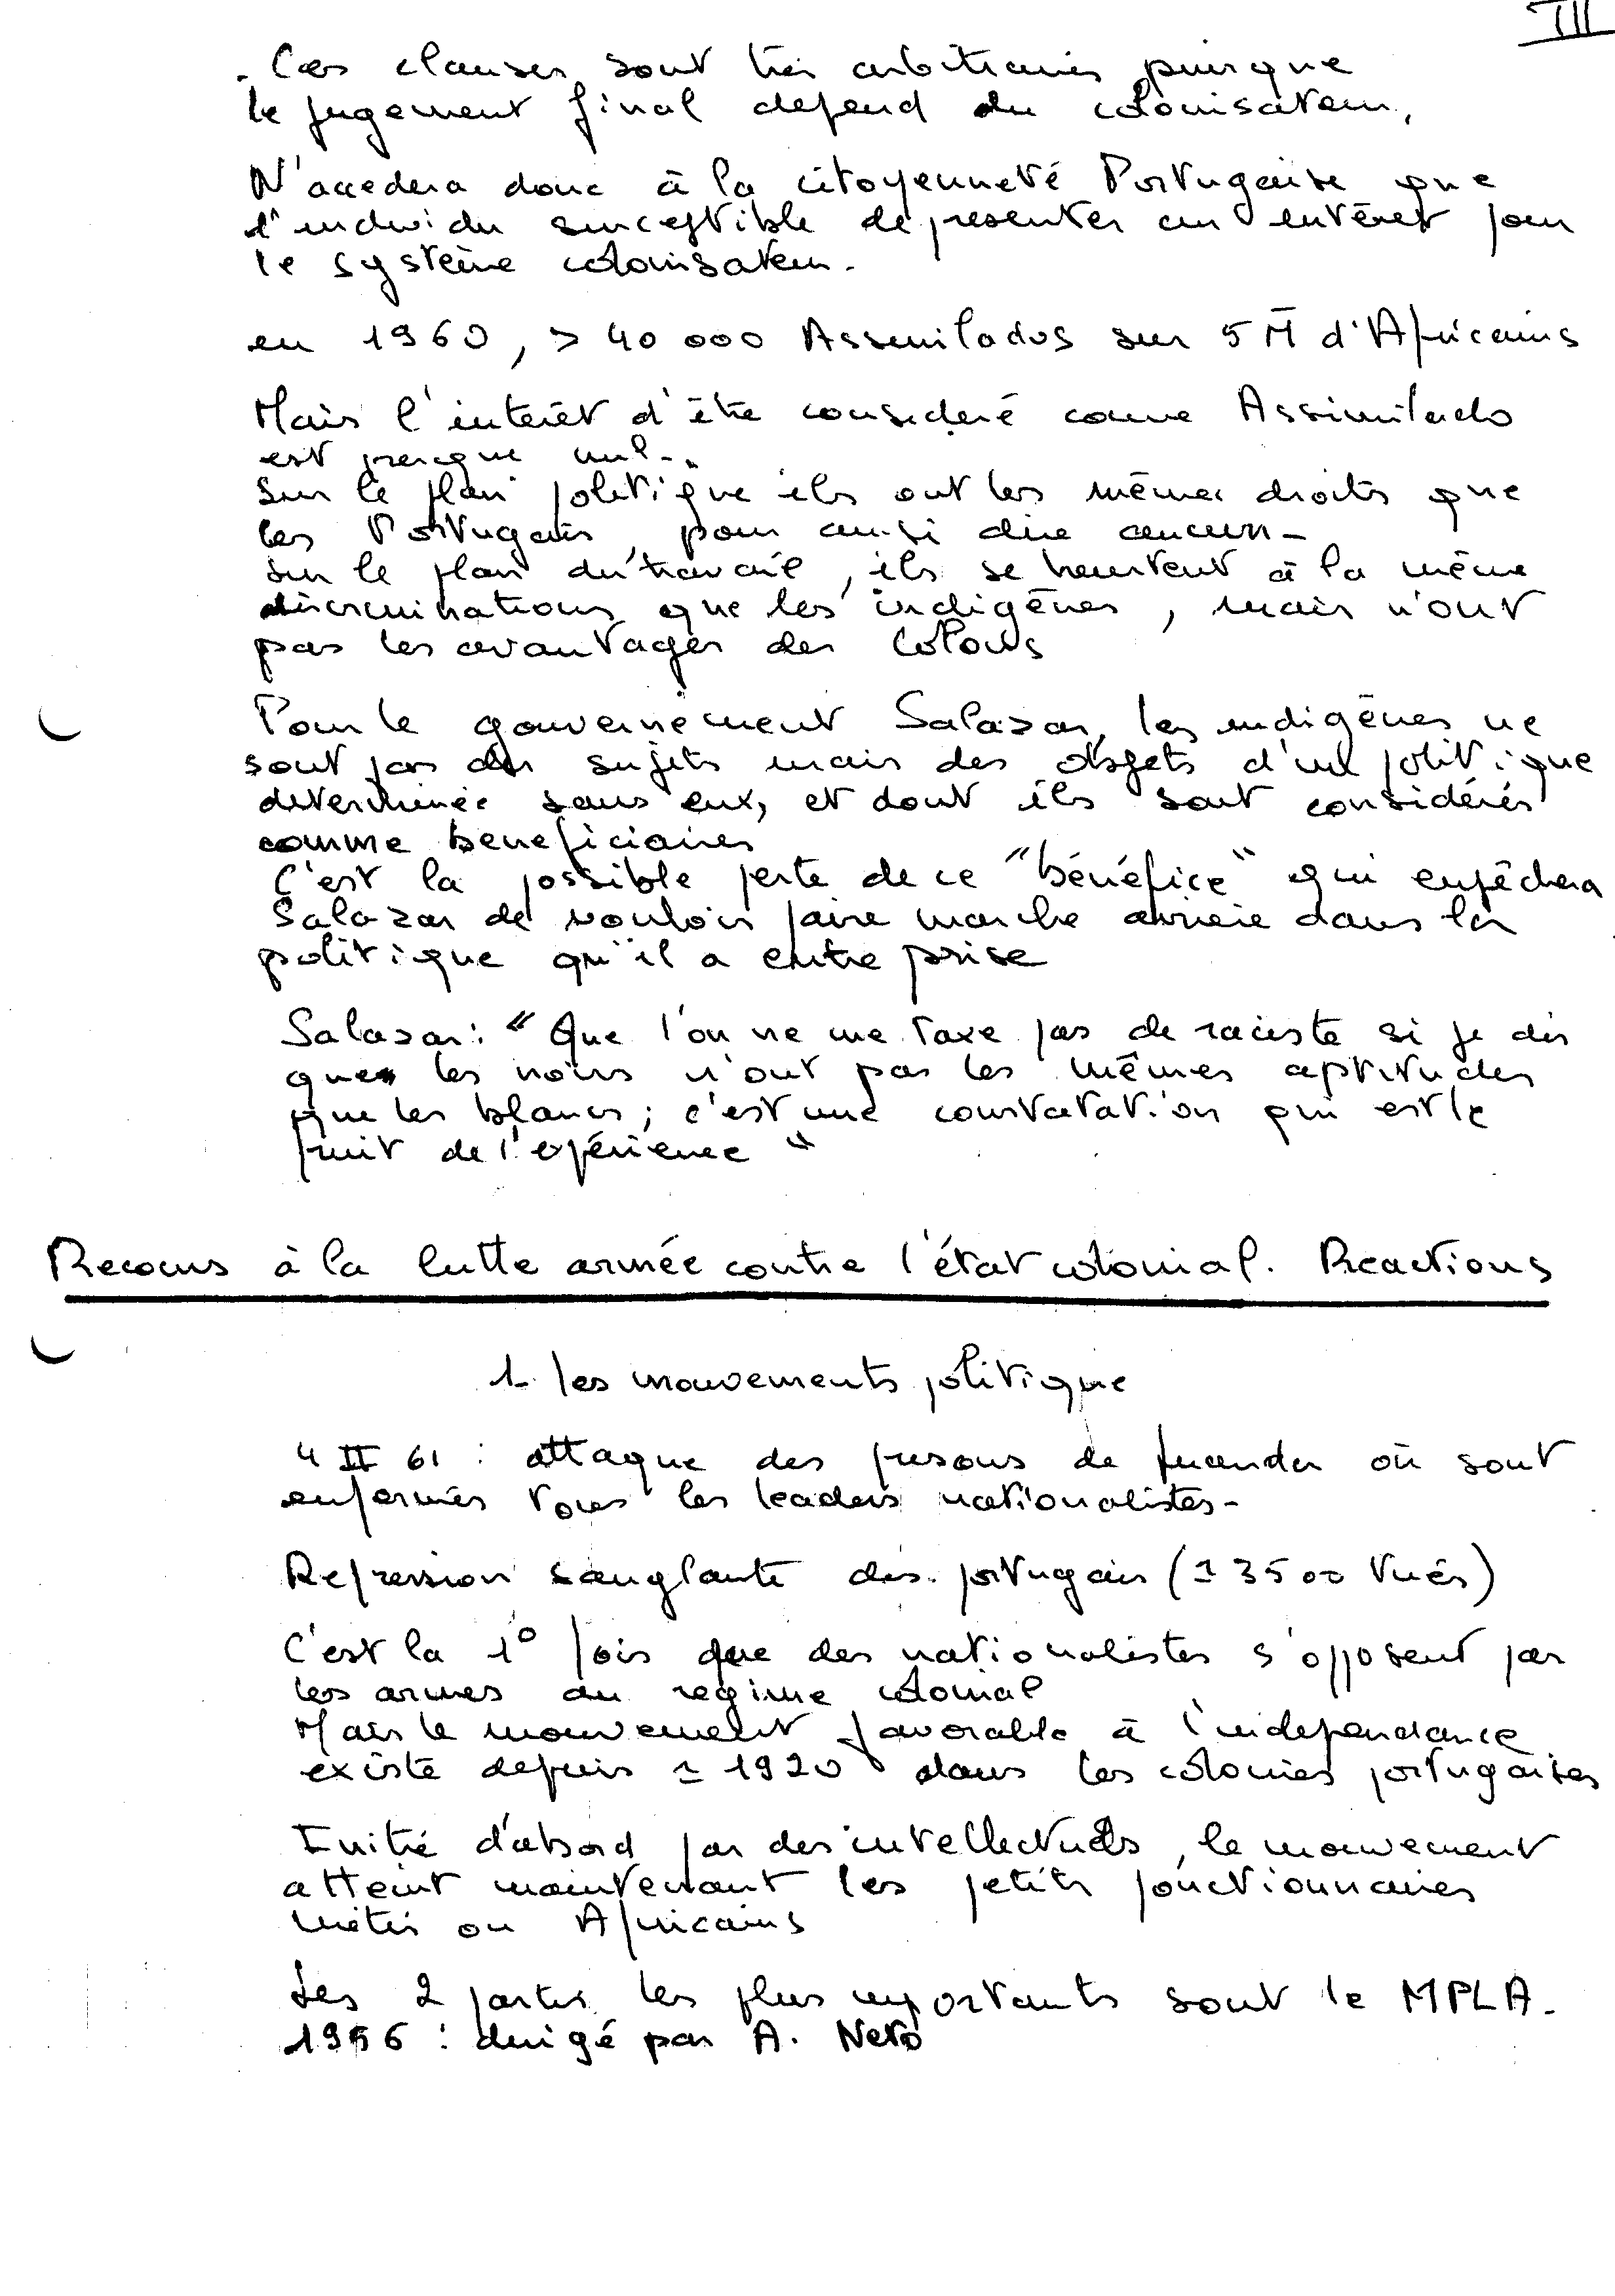 III
. Ces clauses sont très arbitraires puisque
le jugement final depend du colonisateur.
N'accedera donc à la citoyenneté Portugaise que
l'individu susceptible de presenter un interêt pour
le système colonisateur.
en 1960, > 40 000 Assimilados sur 5 M̄ d'Africains
Mais l'interêt d'être consideré comme Assimilado
est presque nul-.
Sur le plan politique ils ont les mêmes droits que
les Portugais, pour ainsi dire aucun-
Sur le plan du travail, ils se heurtent à la même
discriminations que les indigènes, mais n'ont
pas les avantages des Colons
Pour le gouvernement Salazar, les indigènes ne
sont pas des sujets mais des objets d'une politique
determinée sans eux, et dont ils sont considérés
comme beneficiaires
C'est la possible perte de ce "bénéfice" qui empêchera
Salazar de vouloir faire marche arriere dans la
politique qu'il a entreprise
Salazar: "Que l'on ne me taxe pas de raciste si je dis
que les noirs n'ont pas les mêmes aptitudes
que les blancs; c'est une constatation qui est le
fruit de l'expérience"
Recours à la lutte armée contre l'état colonial. Reactions
1- les mouvements politique
4 II 61 : attaque des prisons de Luanda où sont
enfermés tous les leaders nationalistes-
Repression sanglante des portugais (± 3500 tués)
C'est la 1° fois que des nationalistes s'opposent par
les armes au regime colonial
Mais le mouvement favorable à l'independance
existe depuis ± 1920 dans les colonies portugaises
Initié d'abord par des intellectuels, le mouvement
atteint maintenant les petits fonctionnaires
métis ou Africains
Les 2 partis les plus importants sont le MPLA-
1956 : dirigé par A. Neto